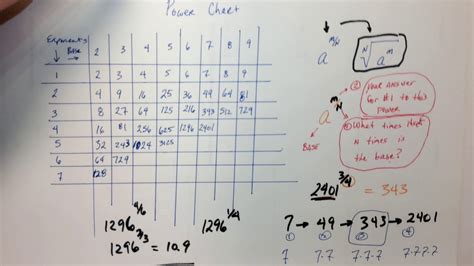 Power Chart
Exponents
Base 2 3 4 5 6 7 8 9
1 2 3 4 5 6 7 8 9
2 4 9 16 25 36 49 64 81
3 8 27 64 125 216 343 512 729
4 16 81 256 625 1296 2401
5 32 243 1024 3125
6 64 729
7 128
a^m/n
n√a^m
a^m/N
BASE
② Your Answer
for #1 to this
Power
① What times itself
N times is
the base?
2401^3/4 = 343
1296^4/6
1296^2/3 = 10.9
1296^1/4
7 → 49 → 343 → 2401
① ② ③ ④
7 7·7 7·7·7 7·7·7·7